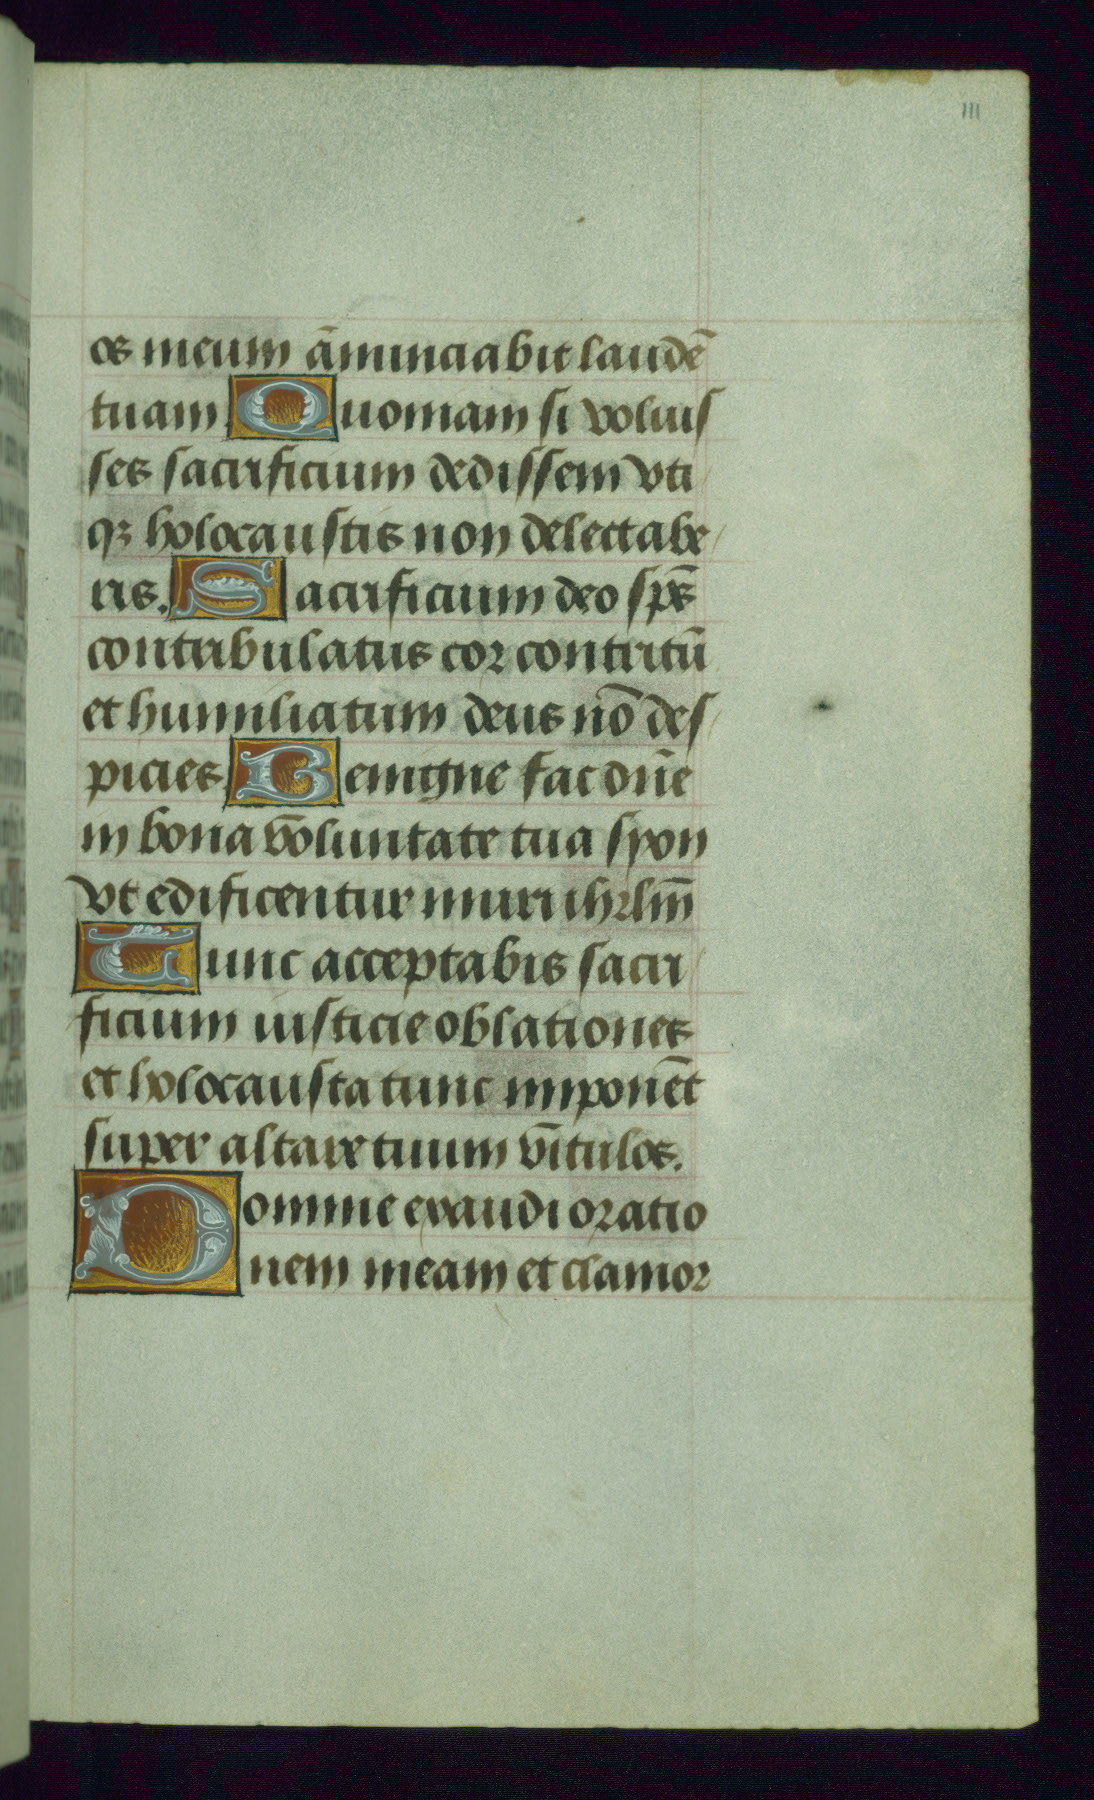 111
os meum ānunciabit laudē
tuam. Quoniam si voluis
ses sacrificium dedissem vti
qꝫ holocaustis non delectabe
ris. Sacrificium deo sp̄s
contribulatus cor contritū
et humiliatum deus nō des
picies. Benigne fac dn̄e
in bona voluntate tua syon
vt edificentur muri ihrl̄m
Tunc acceptabis sacri
ficium iusticie oblationes
et holocausta tunc imponēt
super altare tuum vitulos.
Domine exaudi oratio
nem meam et clamor